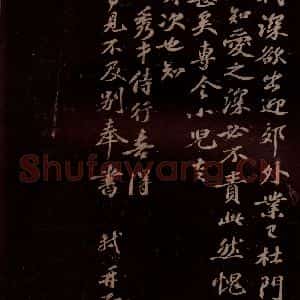 深欲出迎郊外業已杜門
知愛之深必不責此然愧
甚矣專令小兒
次也知
秀才侍行喜得
見不及別奉書 軾再
Shufawang.CN